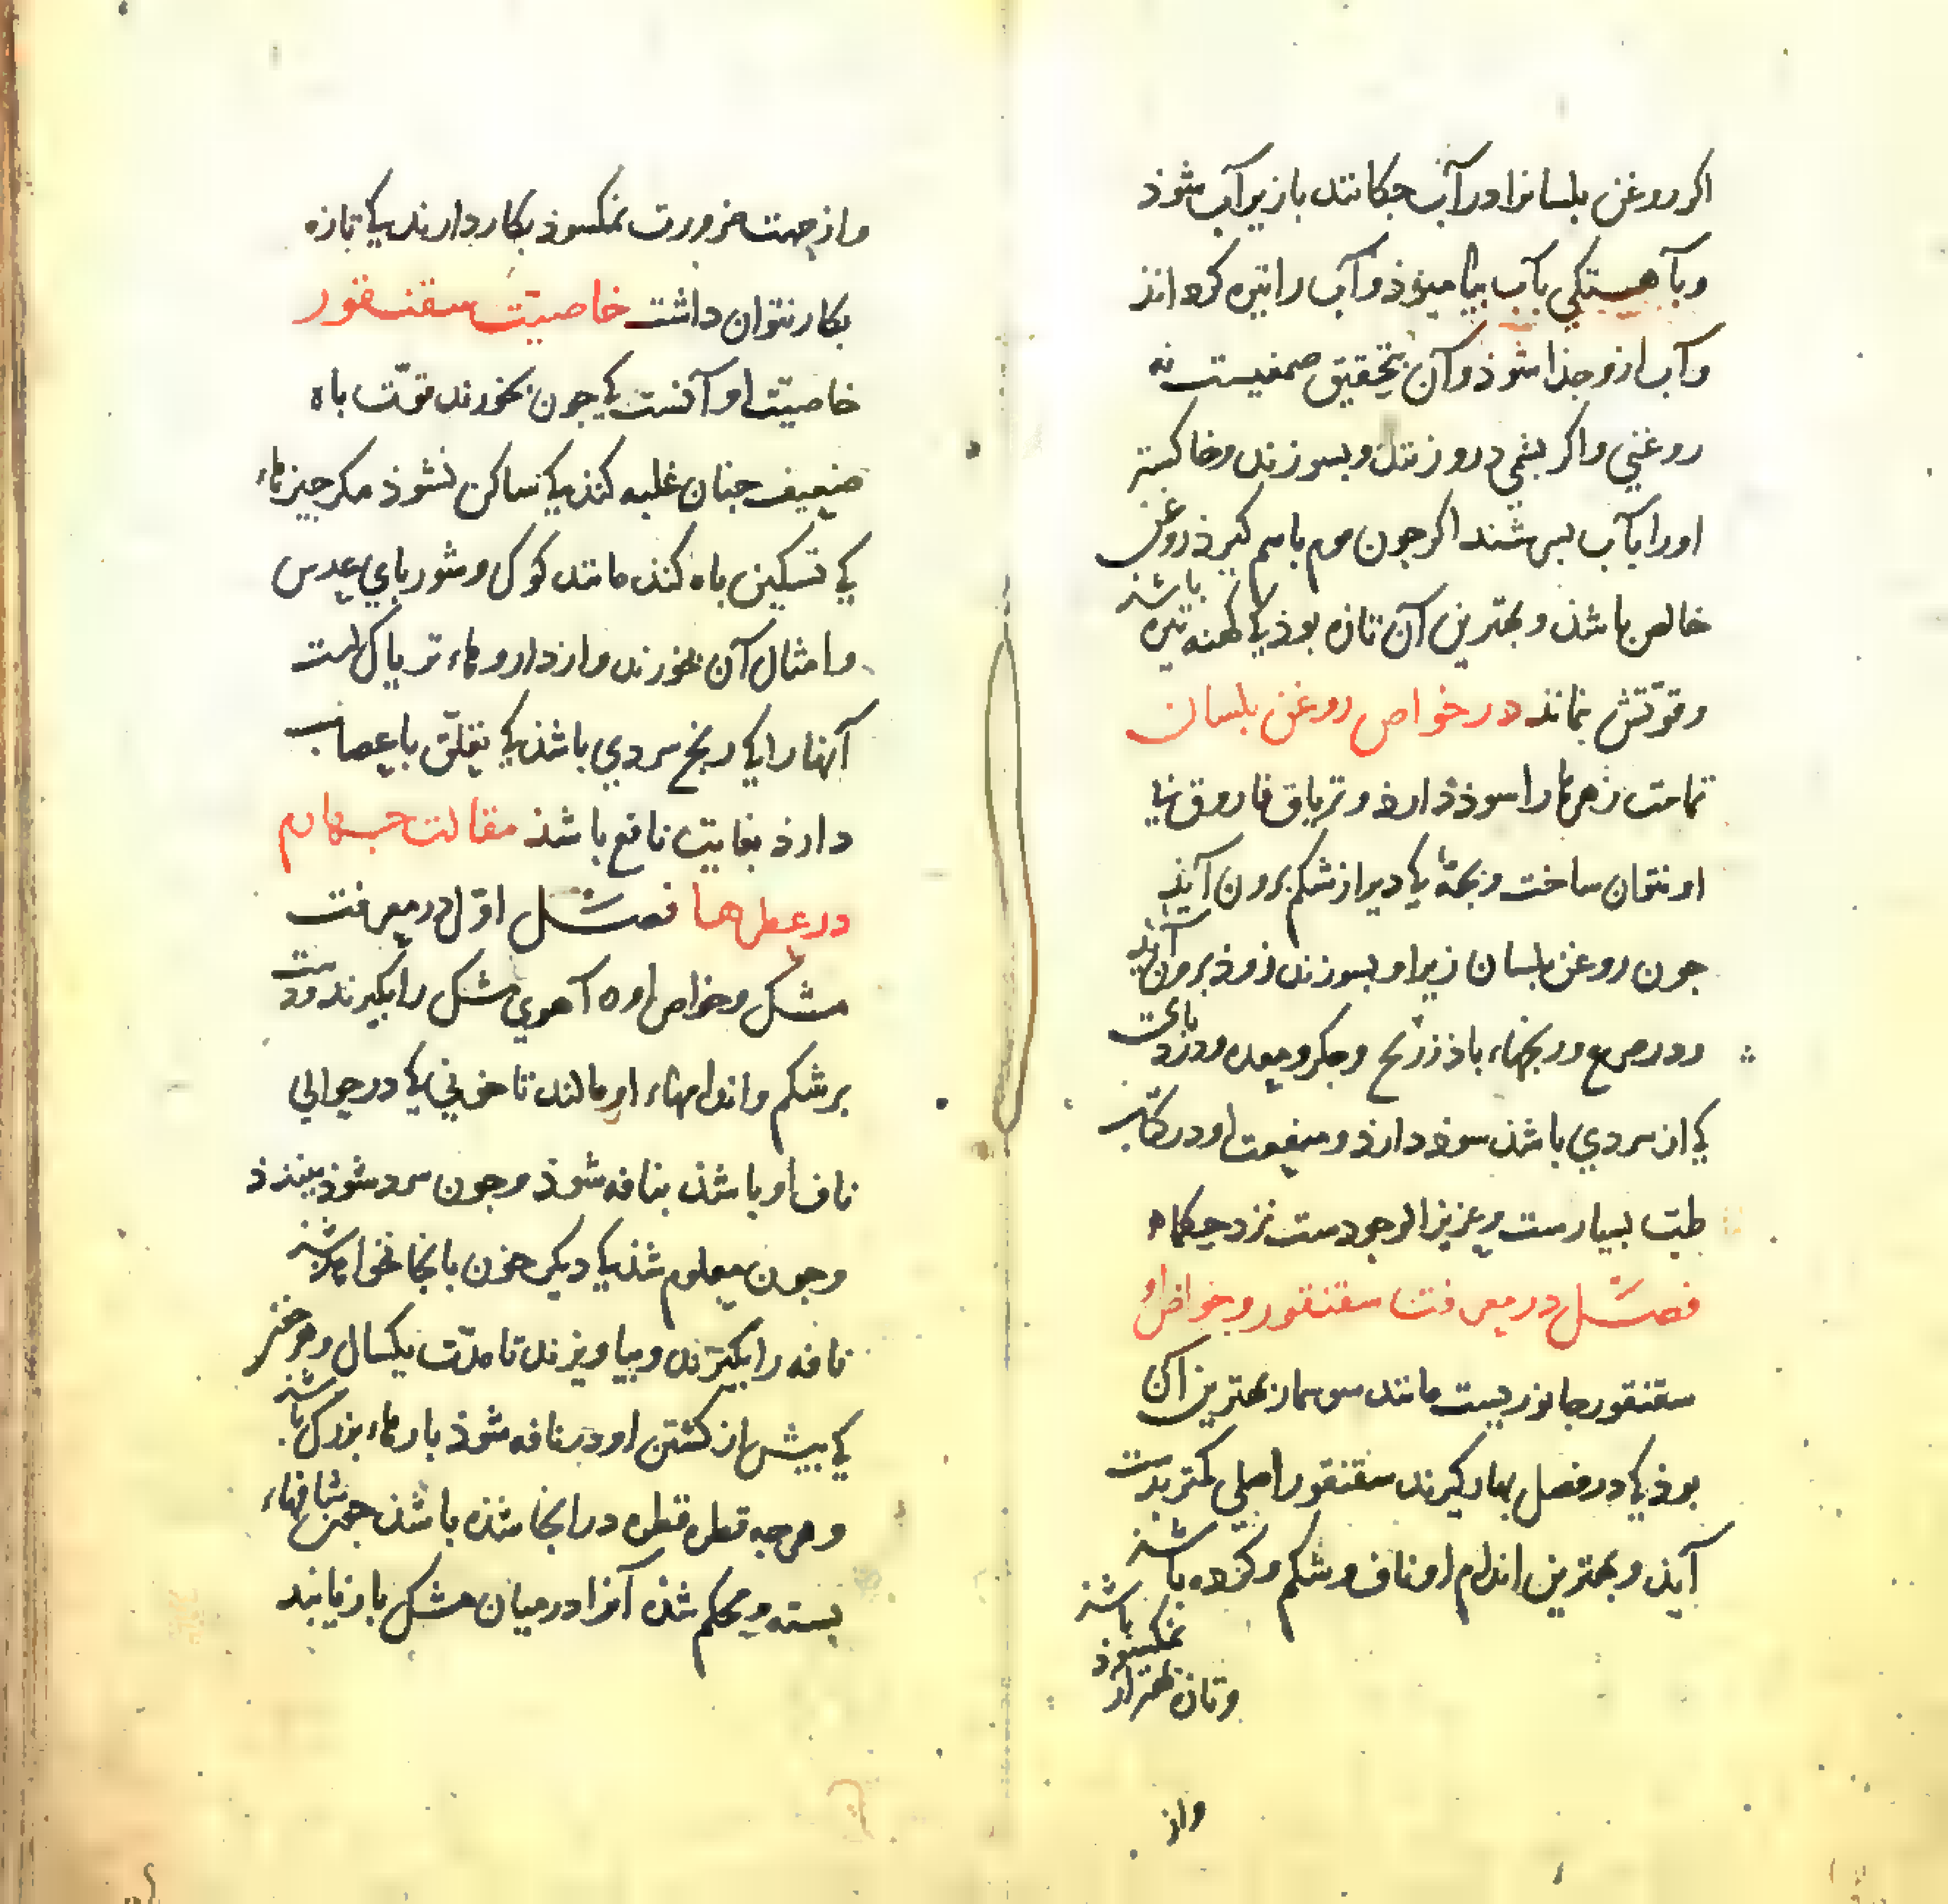 اکر روغن بلسانرا در آب جکانند با زیر آب شوذ
وبآهستکی بآب بیامیزذ وآب را تیره کرداند
وآب ازو جذا شوذ وآن بتحقیق صمغیست نه
روغنی واکر بشمی درو زنند وبسوزند وخاکستر
اورا بآب بسرشند اکر جون موم باهم کیرذ روغن
خالص باشذ و بهترین آن تازه بوذ کی کهنه تیره باشذ
وقوّتش نماند در خواص روغن بلسان
تمامت زهرهارا سوذ دارذ و تریاق فاروق بی
او نتوان ساخت وبجهٔ کی دیر از شکم برون آید
جون روغن بلسان زیر او بسوزند زوذ برون آید
ودر صرع ورنجهاء باذ زرنج وجکر ومعده ودرد بای
کی از سردی باشذ سوذ دارذ ومنفعت او در کتاب
طبّ بسیارست وعزیز الوجودست نزد حکماء
فصل در معرفت سقنقور وخواص او
سقنقور جانوریست مانند سوسمار بهترین آن
بوذ کی در فصل بهار کیرند سقنقور اصلی کمتر بدست
آیذ و بهترین اندام او ناف وشکم وکرده باشذ
وتازه بهتر از نمکسوذ باشذ
واز
واز جهت ضرورت نمکسوذ بکار دارند کی تازه
بکار نتوان داشت خاصیّت سقنقور
خاصیّت او آنست کی جون بخورند قوّت باه
ضعیف جنان غلبه کند کی ساکن نشوذ مکر جیزهاء
کی تسکین باه کند مانند کوک وشوربای عدس
وامثال آن بخورند واز داروهاء تریاکست
آنهارا کی رنج سردی باشذ کی تعلّق باعصاب
دارذ بغایت نافع باشذ مقالت جهارم
در عطرها فصل اوّل در معرفت
مشک وخواص او ه آهوی مشک را بکیرند ودست
بر شکم واندامهاء او مالند تا خونی کی در حوالی
ناف او باشذ بنافه شوذ وجون سرد شوذ ببندد
وجون معلوم شذ کی دیکر خون بانجا نخواهد شذ
نافه را بکیرند وبیاویزند تا مدّت یکسال وهر خون
کی بیش از کشتن او در نافه شوذ بارهاء بزرک باشذ
وهرجه قطره قطره در انجا شذه باشذ جون شافهاء
بسته ومحکم شذه آنرا در میان مشک باز یابند